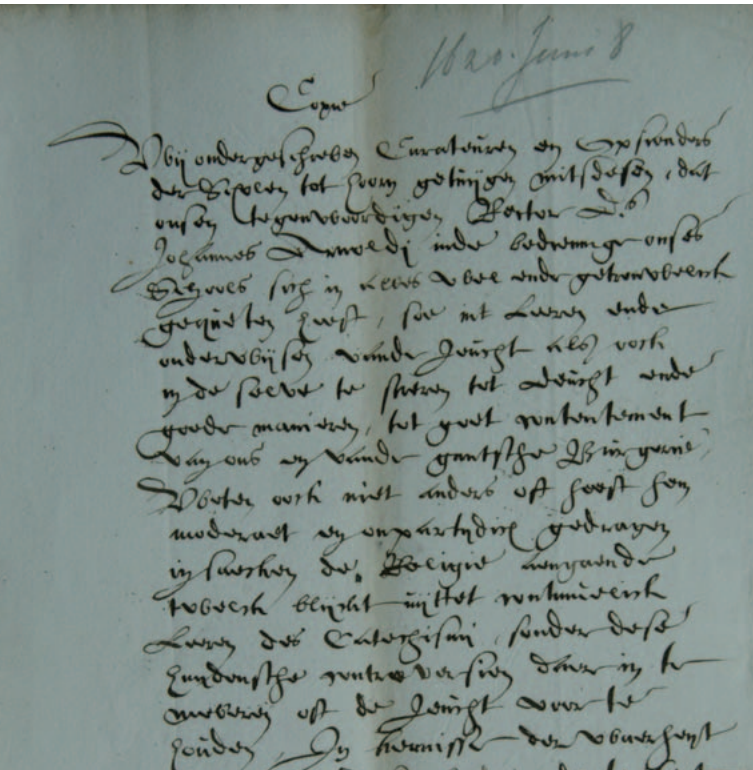 1620. Juni 8
Copie
Wij ondergeschreven Curateuren en Opsienders
der Scolen tot Hoorn getuijgen mitsdesen, dat
onsen tegenwoordigen Rector D.s
Johannes Arnoldj inde bedieninge onses
Schools sich in alles wel ende getrouwelick
gequeten heeft, soe int Leeren ende
onderwijsen vande Jeucht als oock
in de selve te stieren tot deucht ende
goede manieren, tot goet contentement
van ons en vande gantsche Burgerie,
Weten oock niet anders oft heeft hem
moderaet en onpartydich gedragen
in saecken de Religie aengaende
twelck blijckt uijttet continuelick
Leeren des Catechismi, sonder dese
huydensche controversien daer in te
moveren oft de Jeucht voor te
houden, In kennisse der waerheyt